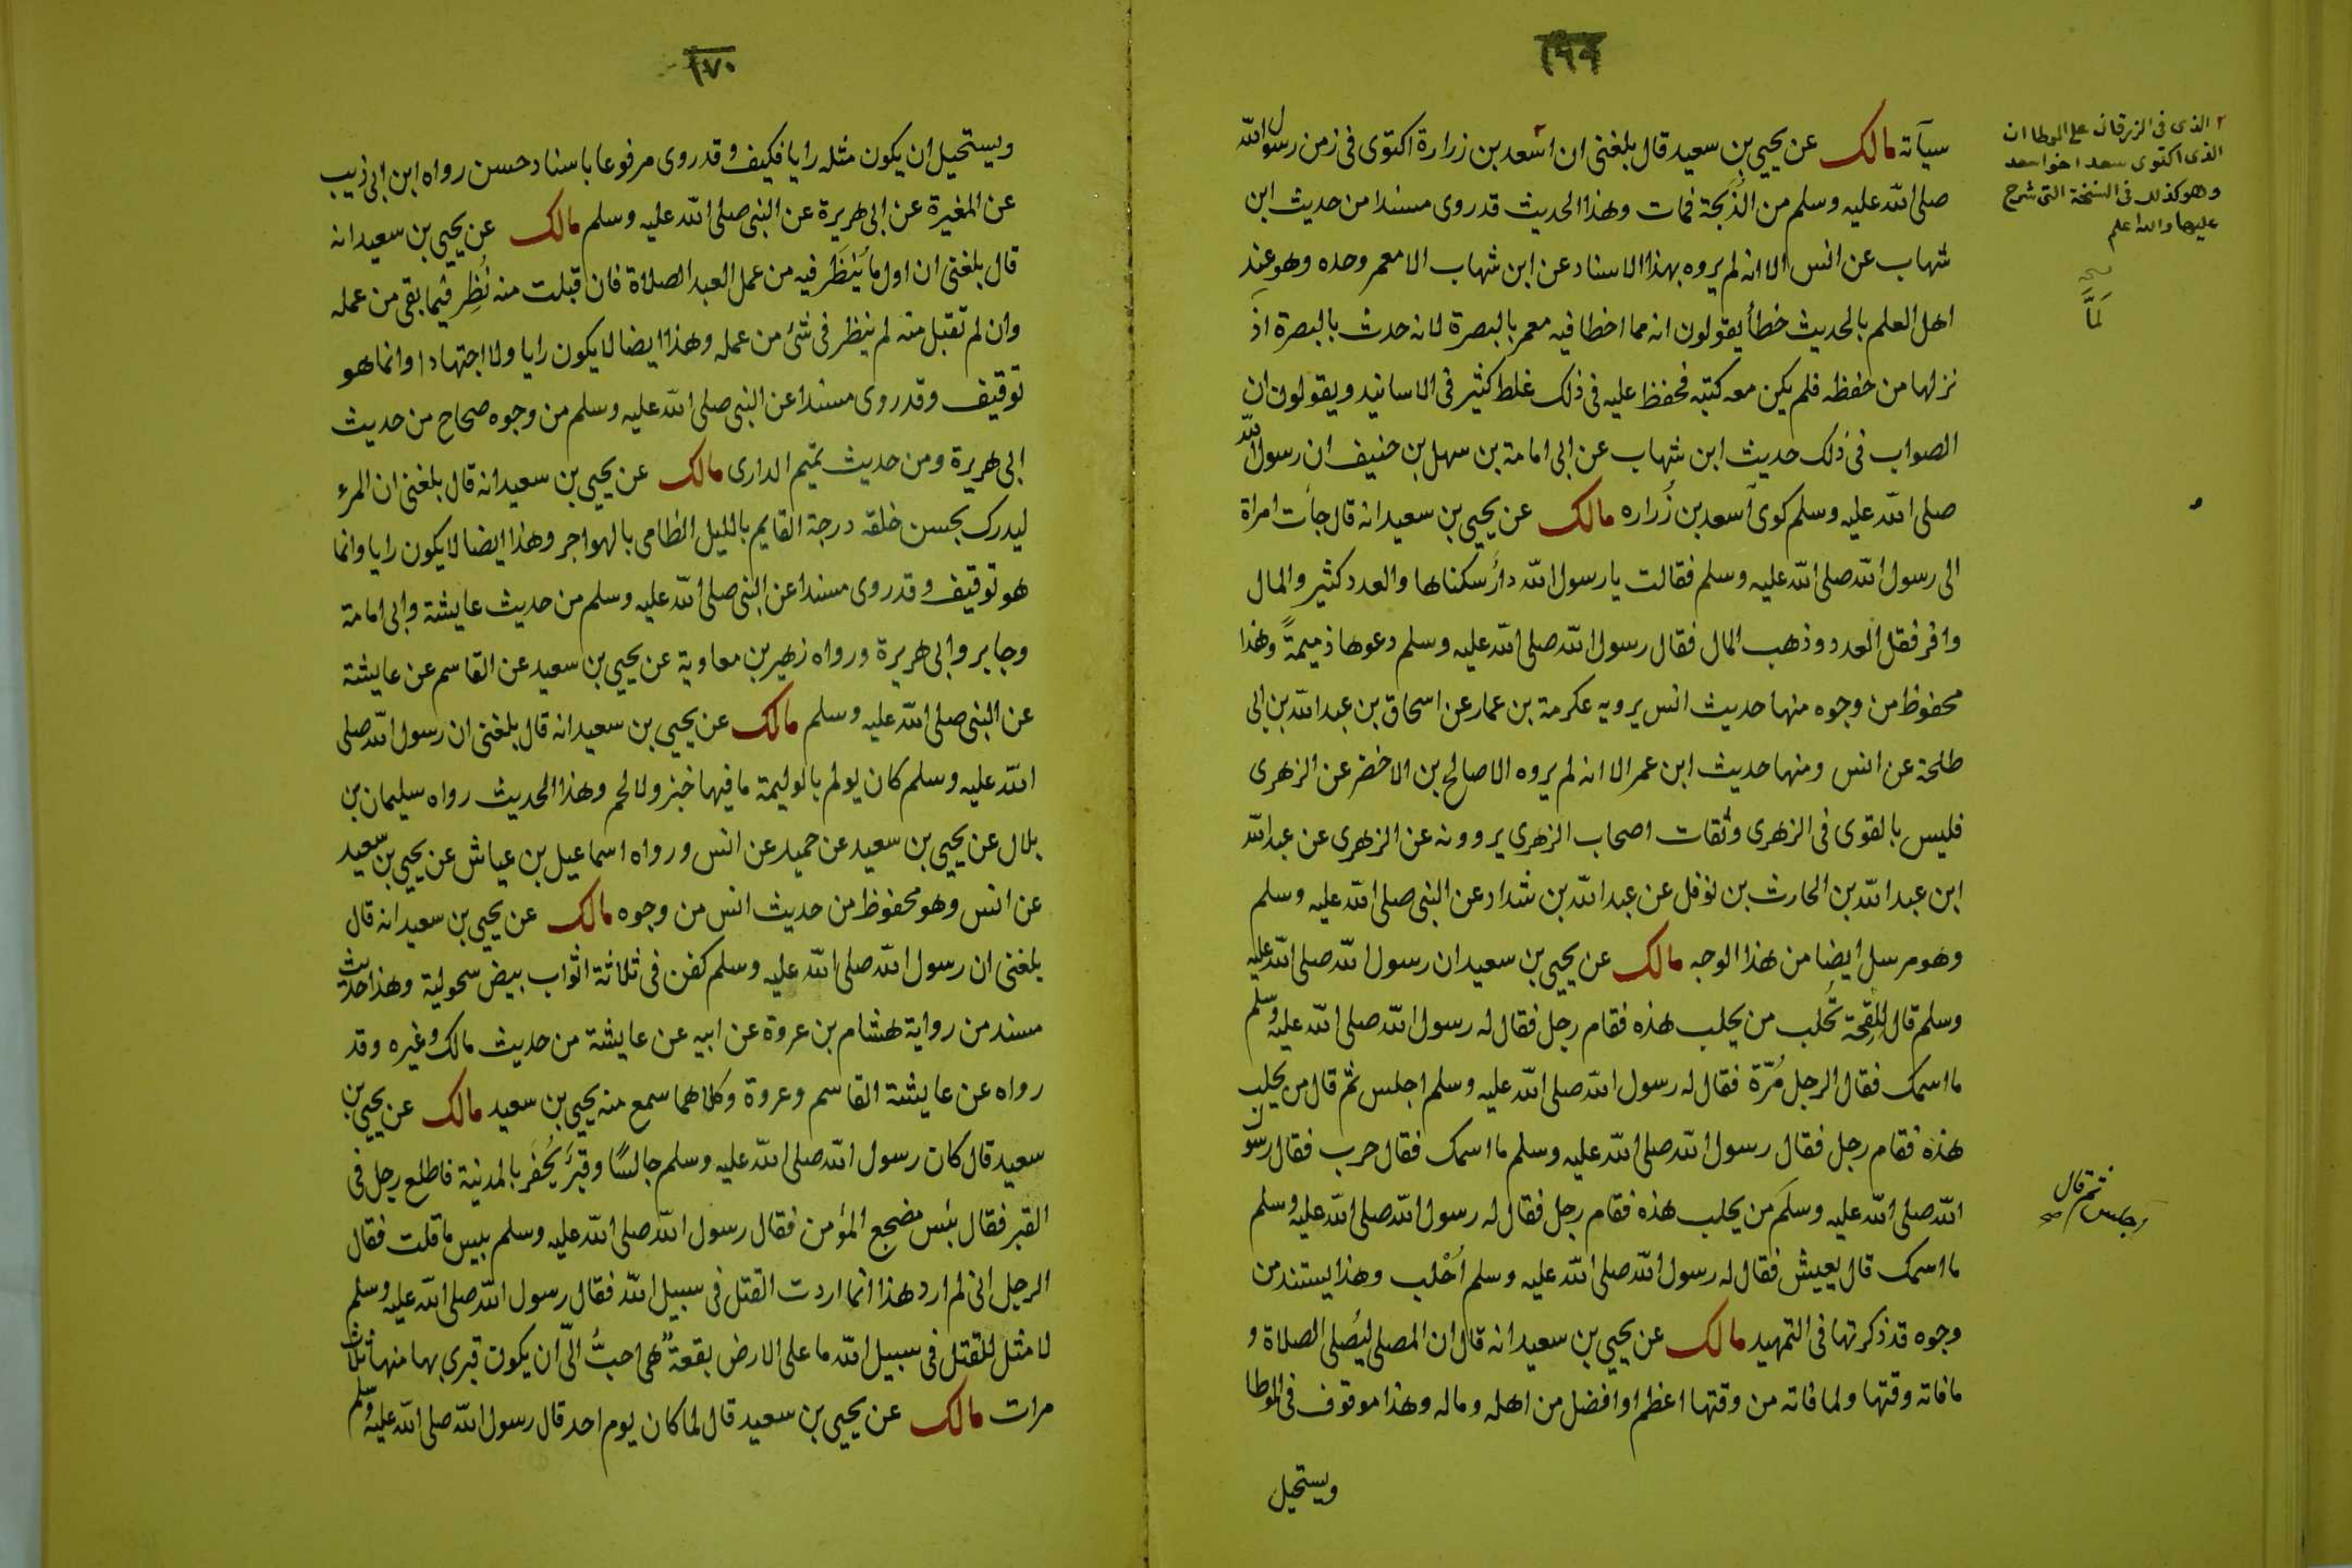 ١٦٩
سيآته مالك عن يحيى بن سعيد قال بلغني ان اسعد بن زرارة اكتوى في زمن رسول الله
صلى الله عليه وسلم من الذبحة فمات وهذا الحديث قد روى مسندا من حديث ابن
شهاب عن انس الا انه لم يروه بهذا الاسناد عن ابن شهاب الا معمر وحده وهو عند
اهل العلم بالحديث خطأ يقولون انه مما اخطا فيه معمر بالبصرة لانه حدث بالبصرة اذ
نزلها من حفظه فلم يكن معه كتبه فحفظ عليه في ذلك غلط كثير في الاسانيد ويقولون ان
الصواب في ذلك حديث ابن شهاب عن ابى امامة بن سهل بن حنيف ان رسول الله
صلى الله عليه وسلم كوى أسعد بن زُراره مالك عن يحيى بن سعيد انه قال جأت امراة
الى رسول الله صلى الله عليه وسلم فقالت يا رسول الله دارٌ سكناها والعدد كثير والمال
وافر فقل العدد وذهب المال فقال رسول الله صلى الله عليه وسلم دعوها ذميمةً وهذا
محفوظ من وجوه منها حديث انس يرويه عكرمة بن عمار عن اسحاق بن عبد الله بن ابى
طلحة عن انس ومنها حديث ابن عمر الا انه لم يروه الا صالح بن الاخضر عن الزهرى
فليس بالقوى في الزهرى وثقات اصحاب الزهري يروونه عن الزهرى عن عبد الله
ابن عبد الله بن الحارث بن نوفل عن عبد الله بن شداد عن النبى صلى الله عليه وسلم
وهو مرسل ايضا من هذا الوجه مالك عن يحيى بن سعيد ان رسول الله صلى الله عليه
وسلم قال لِلَقِحة تُحلب من يحلب هذه فقام رجل فقال له رسول الله صلى الله عليه وسلم
ما اسمك فقال الرجل مُرّة فقال له رسول الله صلى الله عليه وسلم اجلس ثم قال من يحلب
هذه فقام رجل فقال رسول الله صلى الله عليه وسلم ما اسمك فقال حرب فقال رسول
الله صلى الله عليه وسلم من يحلب هذه فقام رجل فقال له رسول الله صلى الله عليه وسلم
ما اسمك قال يعيش فقال له رسول الله صلى الله عليه وسلم اُحْلب وهذا يستند من
وجوه قد ذكرتها في التمهيد مالك عن يحيى بن سعيد انه قال ان المصلي ليُصلى الصلاة و
ما فاته وقتها ولما فاته من وقتها اعظم او افضل من اهله وماله وهذا موقوف في الموطا
ويستحيل
٢ الذى في الزرقانى على الموطا ان
الذى اكتوى سعد اخو اسعد
وهو كذلك في النسخة التى شرح
عليها والله اعلم
لمَّا
ثم قال
اجلس
١٧٠
ويستحيل ان يكون مثله رايا فكيف وقد روى مرفوعا باسناد حسن رواه ابن ابى ذيب
عن المغيرة عن ابى هريرة عن النبى صلى الله عليه وسلم مالك عن يحيى بن سعيد انه
قال بلغنى ان اول ما يُنظَر فيه من عمل العبد الصلاة فان قبلت منه نُظِر فيما بقى من عمله
وان لم تقبل منه لم ينظر في شئ من عمله وهذا ايضا لا يكون رايا ولا اجتهادا وانما هو
توقيف وقد روى مسندا عن النبى صلى الله عليه وسلم من وجوه صحاح من حديث
ابى هريرة ومن حديث تميم الدارى مالك عن يحيى بن سعيد انه قال بلغنى ان المرء
ليدرك بحسن خلقه درجة القايم بالليل الظامى بالهواجر وهذا ايضا لا يكون رايا وانما
هو توقيف وقد روى مسندا عن النبى صلى الله عليه وسلم من حديث عايشة وابى امامة
وجابر وابى هريرة ورواه زهير بن معاوية عن يحيى بن سعيد عن القاسم عن عايشة
عن النبى صلى الله عليه وسلم مالك عن يحيى بن سعيد انه قال بلغنى ان رسول الله صلى
الله عليه وسلم كان يولم بالوليمة ما فيها خبز ولا لحم وهذا الحديث رواه سليمان بن
بلال عن يحيى بن سعيد عن حميد عن انس ورواه اسماعيل بن عياش عن يحيى بن سعيد
عن انس وهو محفوظ من حديث انس من وجوه مالك عن يحيى بن سعيد انه قال
بلغنى ان رسول الله صلى الله عليه وسلم كفن في ثلاثة اثواب بيض سحولية وهذا حديث
مسند من رواية هشام بن عروة عن ابيه عن عايشة من حديث مالك وغيره وقد
رواه عن عايشة القاسم وعروة وكلاهما سمع منه يحيى بن سعيد مالك عن يحيى بن
سعيد قال كان رسول الله صلى الله عليه وسلم جالسًا وقبرٌ يُحفَر بالمدينة فاطلع رجل في
القبر فقال بئس مضجع المؤمن فقال رسول الله صلى الله عليه وسلم بيس ما قلت فقال
الرجل انى لم ارد هذا انما اردت القتل في سبيل الله فقال رسول الله صلى الله عليه وسلم
لا مثل للقتل في سبيل الله ما على الارض بقعةٌ هى احبُّ الىّ ان يكون قبرى بها منها ثلاث
مرات مالك عن يحيى بن سعيد قال لما كان يوم احد قال رسول الله صلى الله عليه وسلم